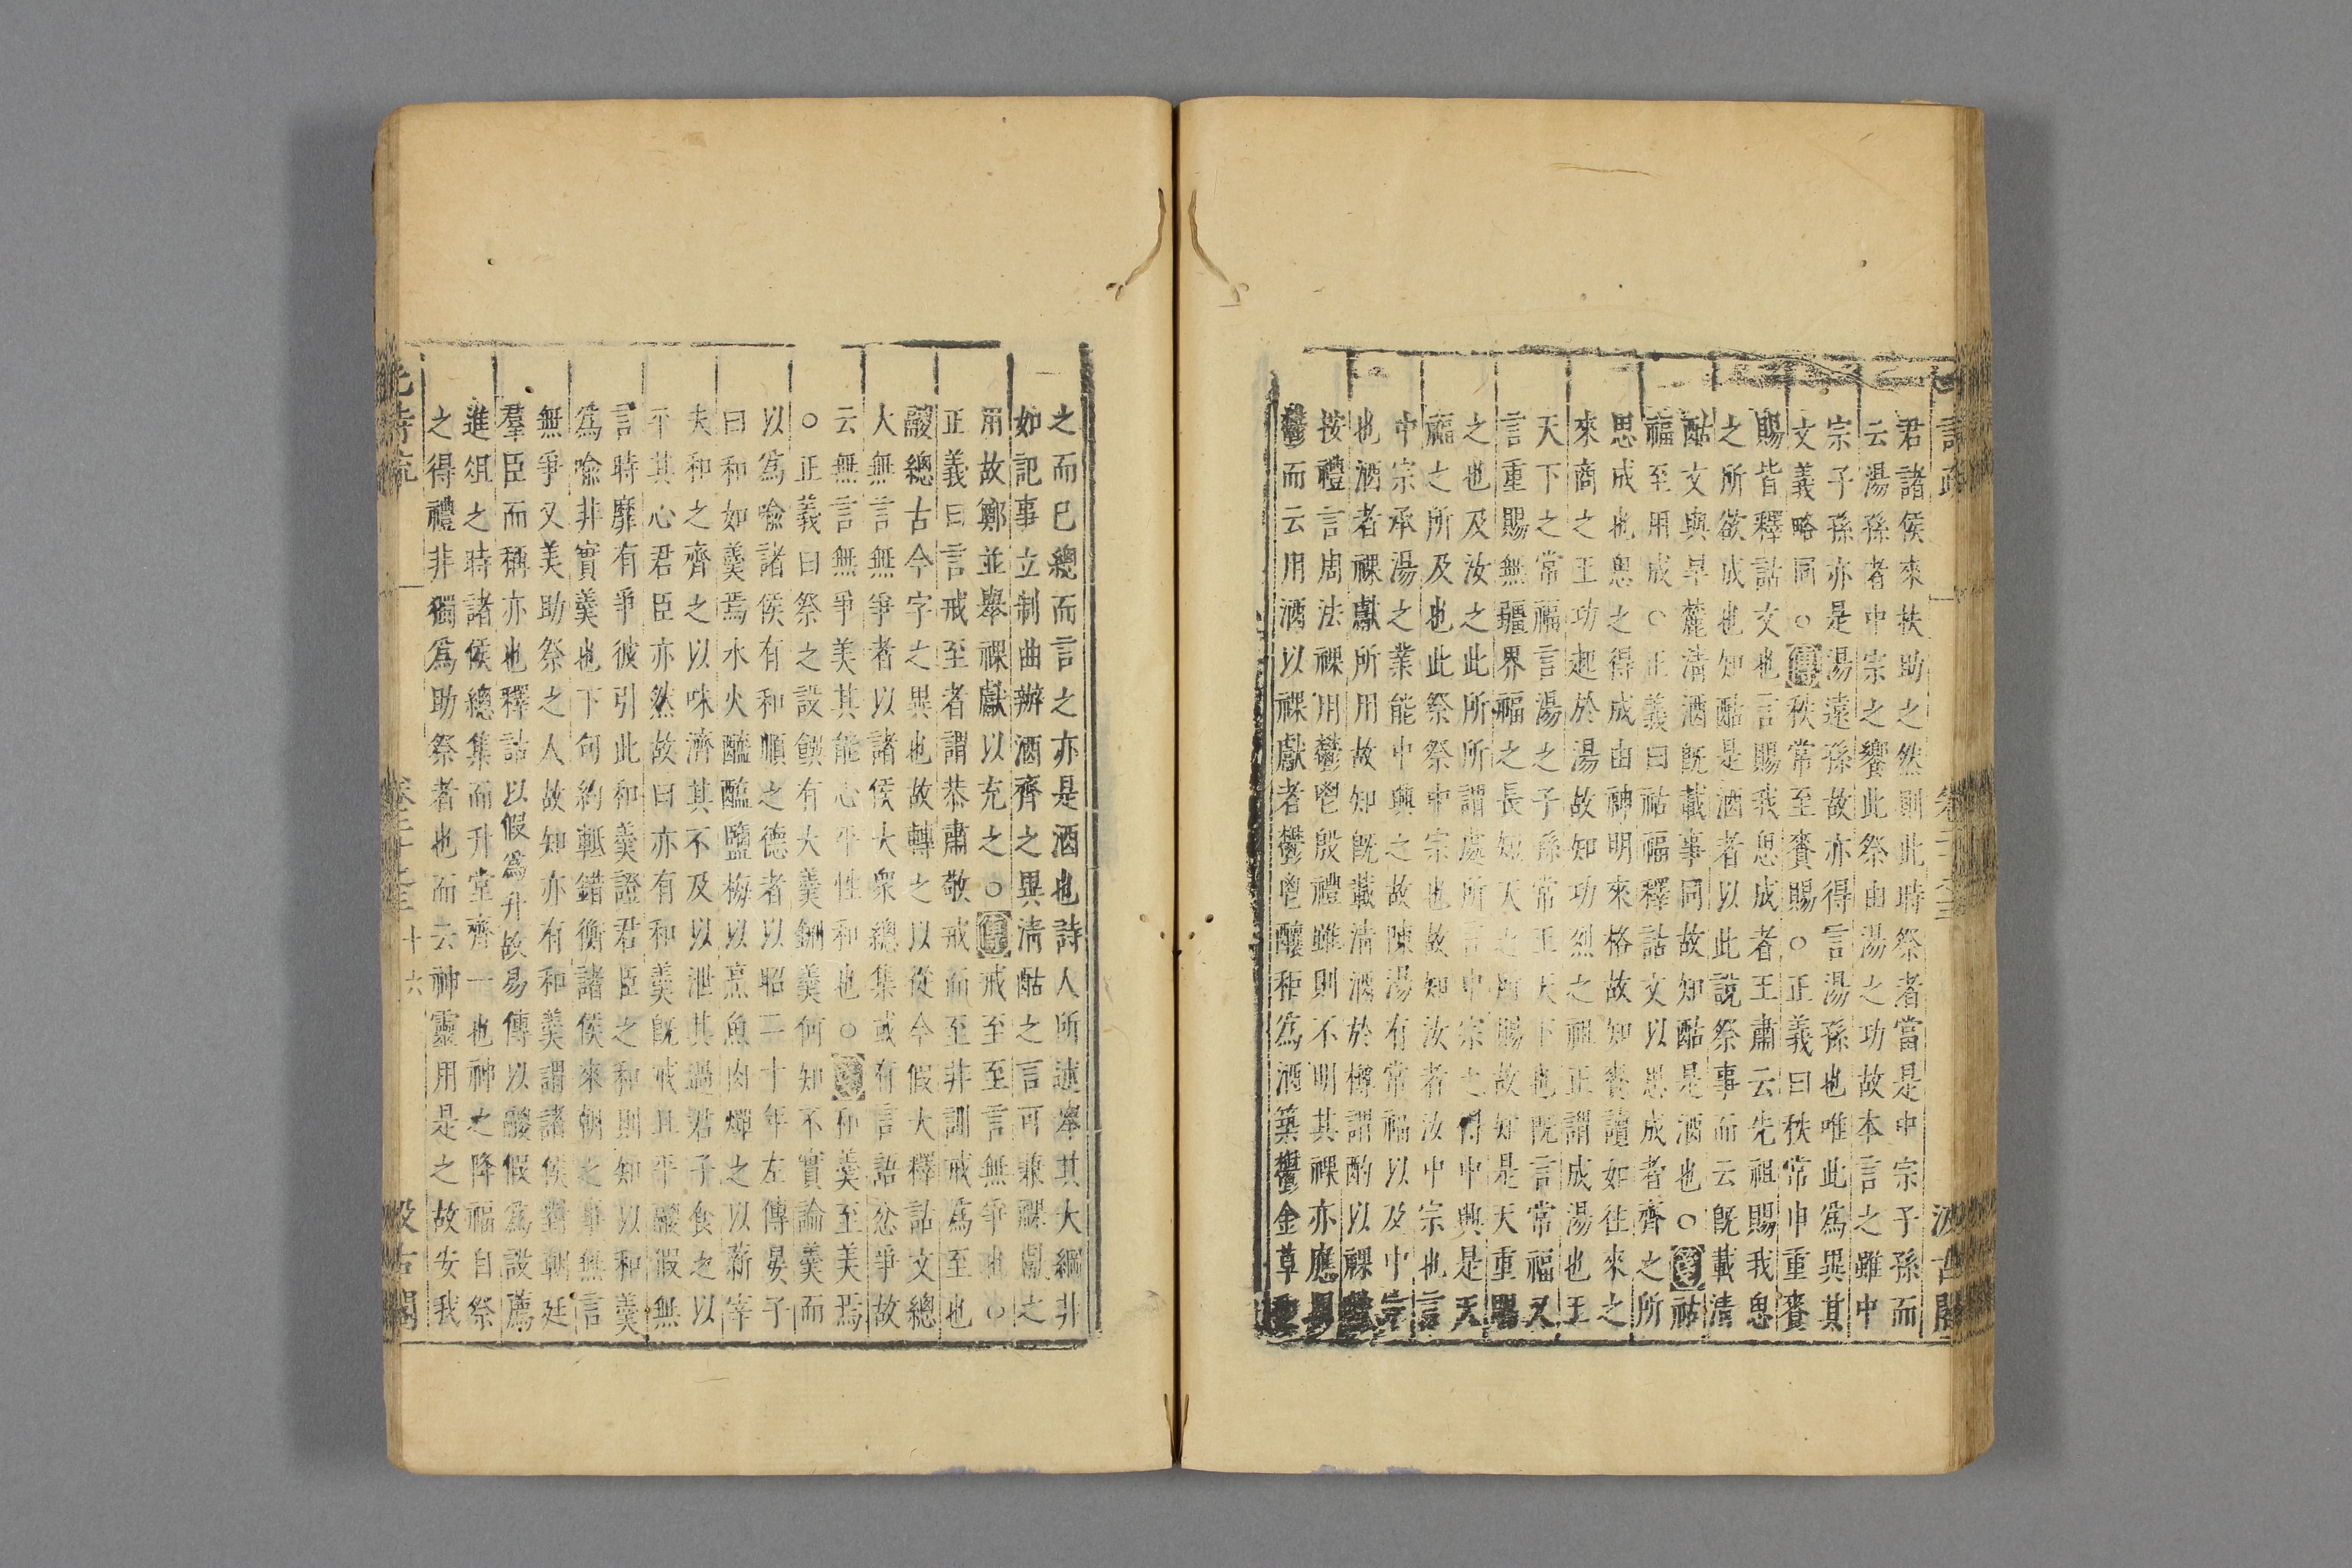 詩疏 卷二十之三 汲古閣
君諸侯來扶助之然則此時祭者當是中宗子孫而
云湯孫者中宗之饗此祭由湯之功故本言之雖中
宗子孫亦是湯遠孫故亦得言湯孫也唯此為異其
文義略同○傳秩常至賚賜○正義曰秩常申重賚
賜皆釋詁文也言賜我思成者王肅云先祖賜我思
之所欲成也知酤是酒者以此說祭事而云旣載清
酤文與旱麓清酒旣載事同故知酤是酒也○箋祜
福至用成○正義曰祜福釋詁文以思成者齊之所
思成也思之得成由神明來格故知賚讀如往來之
來商之王功起於湯故知功烈之祖正謂成湯也王
天下之常福言湯之子孫常王天下也旣言常福又
言重賜無疆界福之長短天之所賜故知是天重賜
之也及汝之此所所謂處所言中宗之得中興是天
福之所及也此祭祭中宗也故知汝者汝中宗也言
中宗承湯之業能中興之故陳湯有常福以及中宗
也酒者祼獻所用故知旣載清酒於樽謂酌以祼獻
按禮言周法祼用鬱鬯殷禮雖則不明其祼亦應
鬱而云用酒以祼獻者鬱鬯釀秬為酒築鬱金草
之而已總而言之亦是酒也詩人所述舉其大綱非
如記事立制曲辦酒齊之異清酤之言可兼祼獻之
用故鄭並舉祼獻以充之○傳戒至至言無爭也○
正義曰言戒至者謂恭肅敬戒而至非訓戒為至也
鬷總古今字之異也故轉之以從今假大釋詁文總
大無言無爭者以諸侯大衆總集或有言語忿爭故
云無言無爭美其能心平性和也○箋和羹至美焉
○正義曰祭之設饌有大羹鉶羹何知不實論羹而
以為喻諸侯有和順之德者以昭二十年左傳晏子
曰和如羹焉水火醯醢鹽梅以烹魚肉燀之以薪宰
夫和之齊之以味濟其不及以泄其過君子食之以
平其心君臣亦然故曰亦有和羹旣戒且平鬷假無
言時靡有爭彼引此和羹證君臣之和則知以和羹
為喻非實羹也下句約軧錯衡諸侯來朝之事無言
無爭又美助祭之人故知亦有和羹謂諸侯對朝廷
羣臣而稱亦也釋詁以假為升故易傳以鬷假為設薦
進俎之時諸侯總集而升堂齊一也神之降福自祭
之得禮非獨為助祭者也而云神靈用是之故安我
毛詩疏 卷二十之三 十六 汲古閣